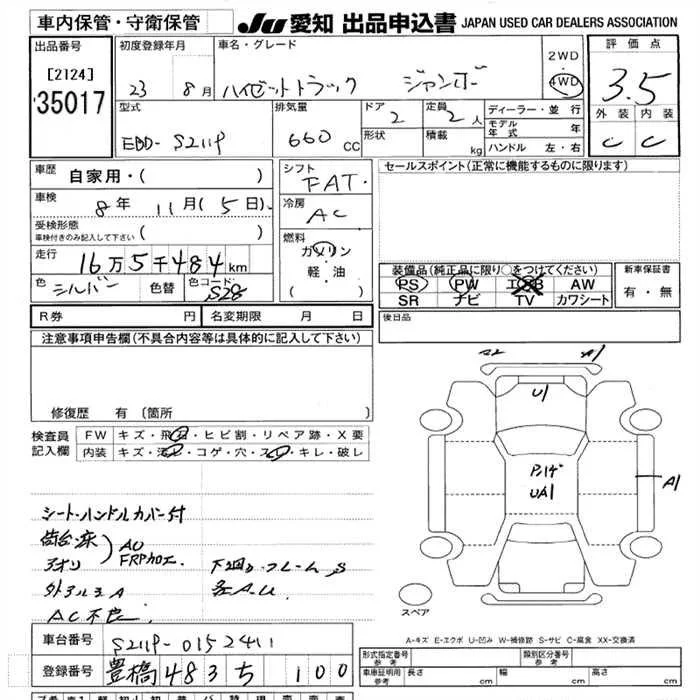 車内保管・守衛保管
JU 愛知 出品申込書 JAPAN USED CAR DEALERS ASSOCIATION
出品番号
[2124]
35017
初度登録年月
23 8月
車名・グレード
ハイゼットトラック ジャンボー
2WD
4WD
評価点
3.5
外装 内装
C C
型式
EBD-S211P
排気量
660 CC
ドア
2
形状
定員
2人
積載 kg
ディーラー・並行
モデル年式 年
ハンドル 左・右
車歴
自家用・( )
車検
8年 11月(5日)
受検形態
車検付きのみ記入して下さい
走行
16万5千484km
色
シルバー
色替
色コード
S28
シフト
FAT
冷房
AC
燃料
ガソリン
軽・油
( )
セールスポイント(正常に機能するものに限ります)
装備品(純正品に限り○をつけてください)
PS PW エアB AW
SR ナビ TV カワシート
新車保証書
有・無
R券 円 名変期限 月 日
後日品
注意事項申告欄(不具合内容等は具体的に記入して下さい)
修復歴 有 [箇所
検査員記入欄
FW キズ・飛石・ヒビ割・リペア跡・X要
内装 キズ・汚れ・コゲ・穴・スレ・キレ・破レ
シート・ハンドルカバー付
荷台・床
アオリ
AU
FRP加工
下回り・フレーム S
各A.U
AC不良
A1
U1
UA1
A1
スペア
A-キズ E-エクボ U-凹み W-補修跡 S-サビ C-腐食 XX-交換済
車台番号
S211P-0152411
登録番号
豊橋 483 ち 100
形式指定番号
参考
類別区分番号
参考
車庫証明用
参考
長さ cm
幅 cm
高さ cm